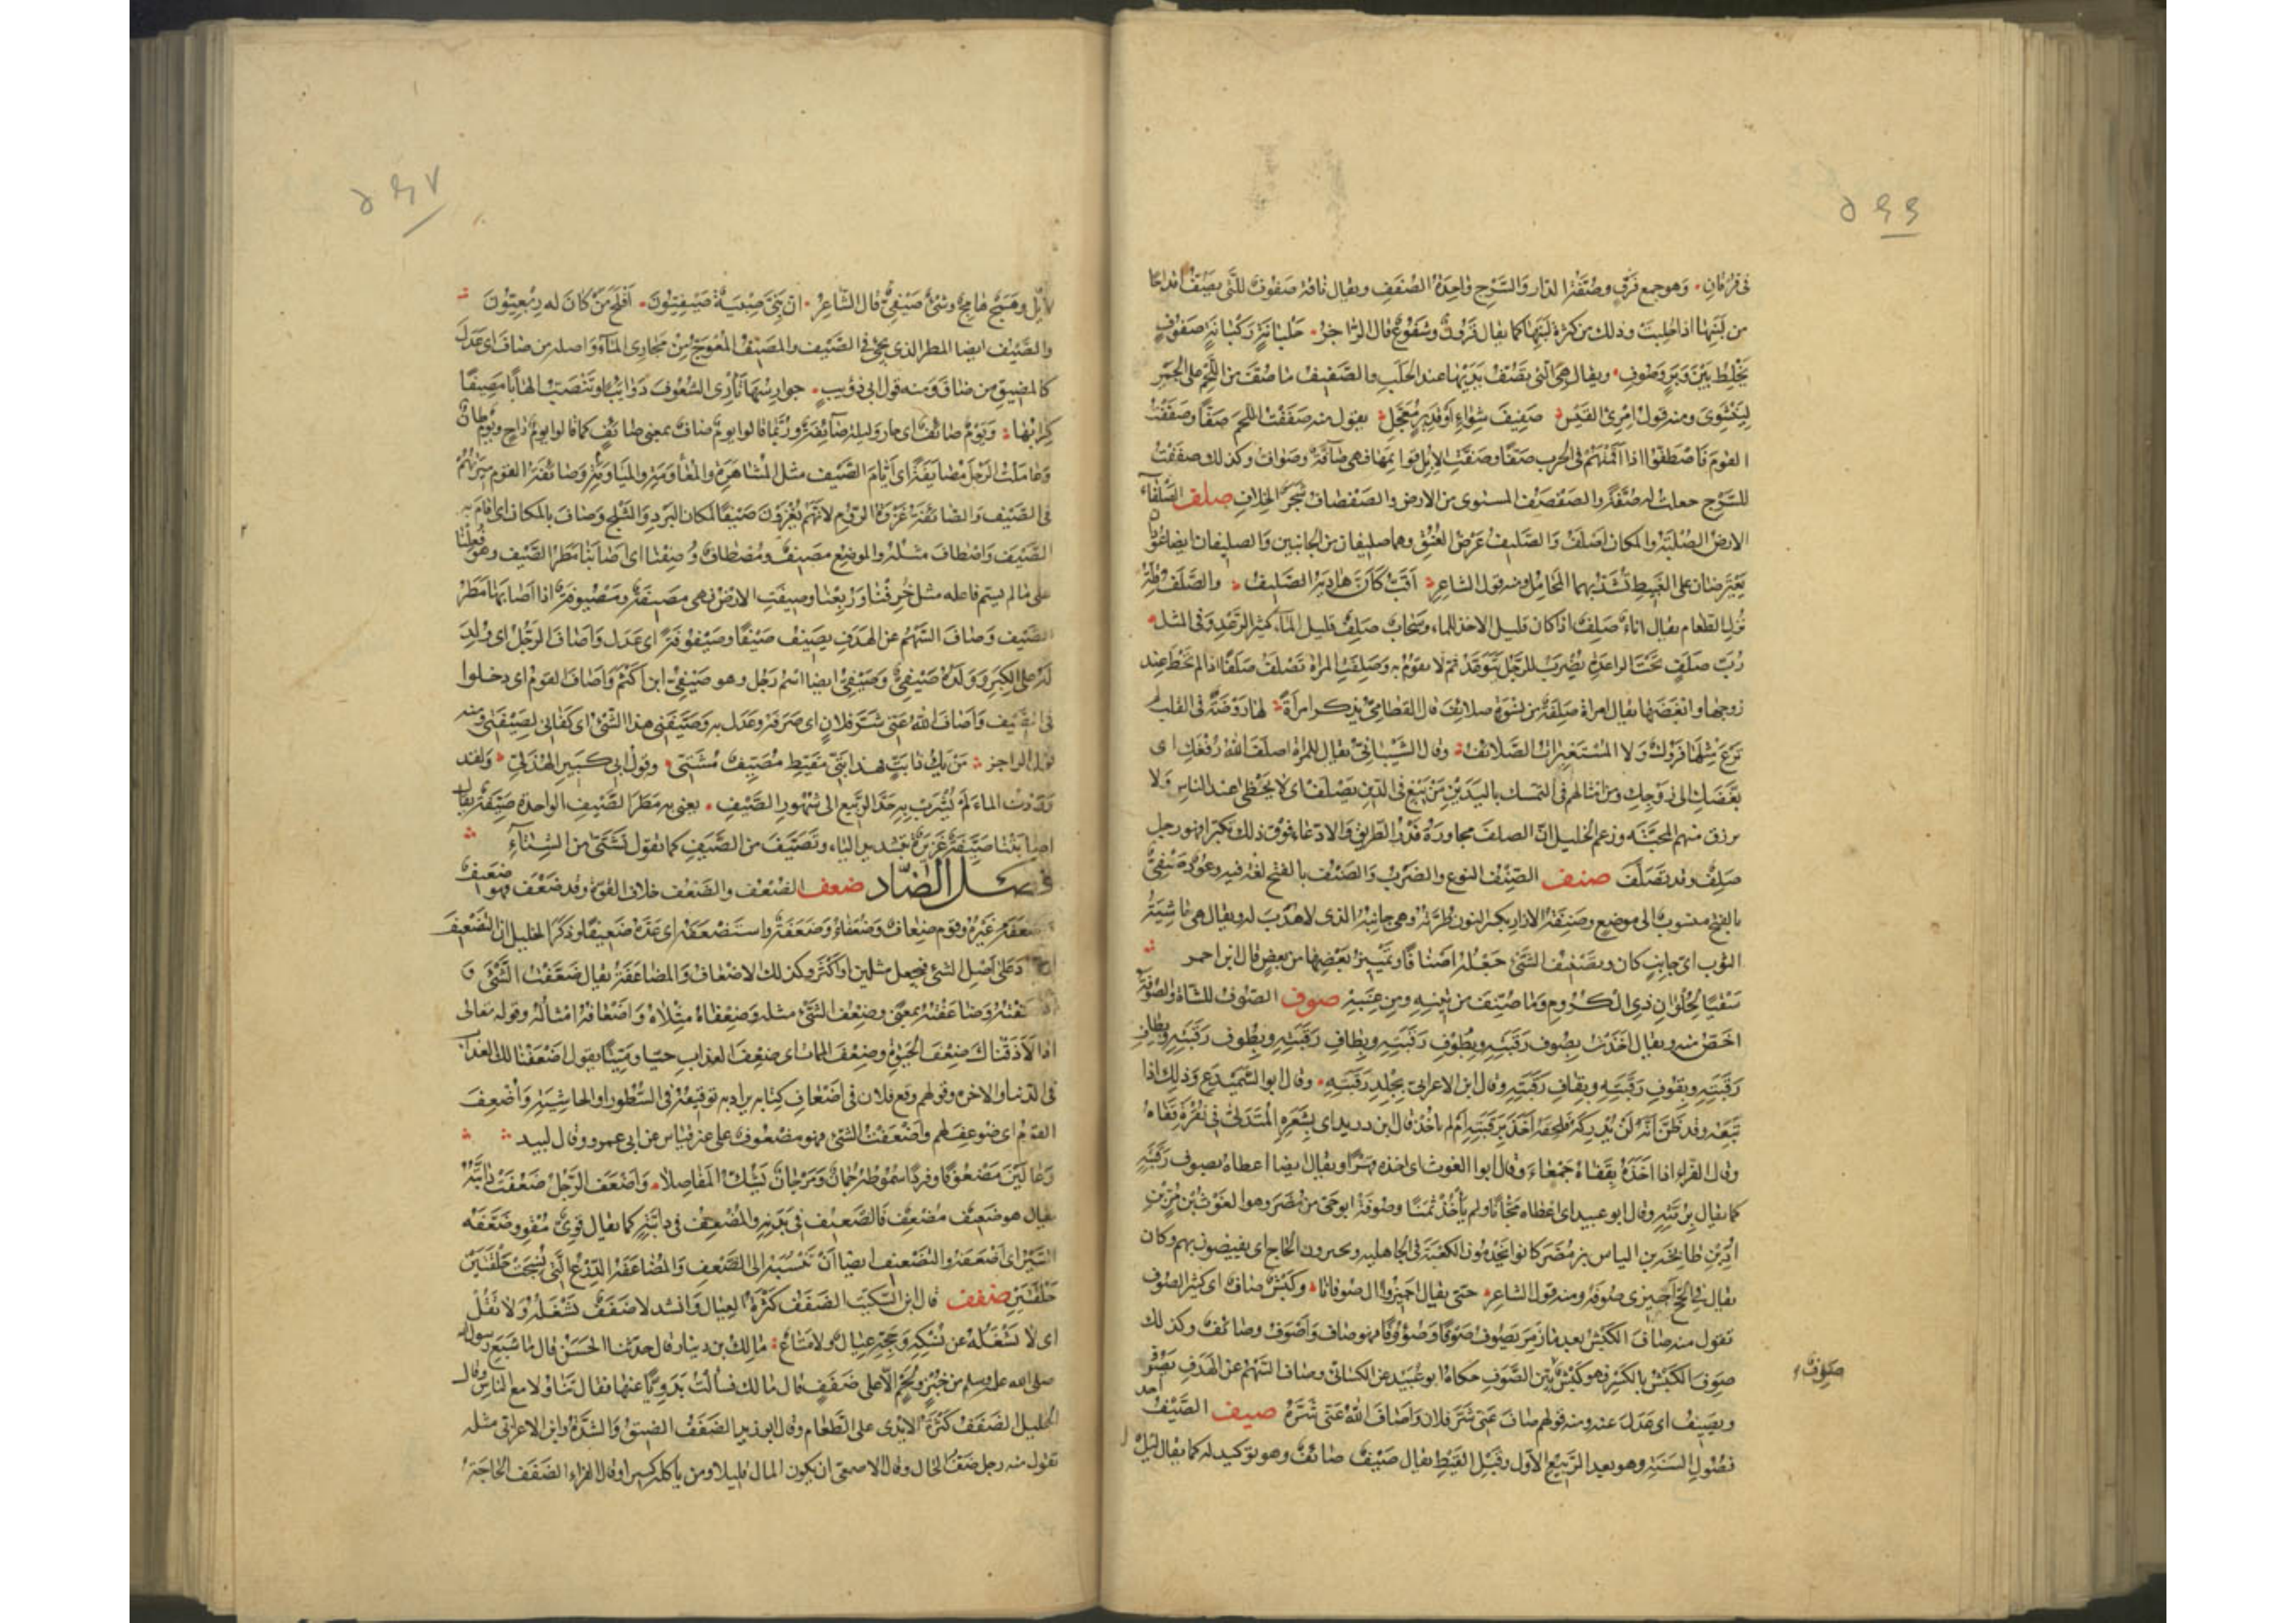 ٥٩٩
فى فرقان وهو جمع فرق وصفة الدار والسرج واحدة الصفف ويقال ناقة صفوف للتى يصف اقداحا
من لبنها اذا حلبت وذلك من كثرة لبنها كما يقال قرون وشفوع قال الراجز حلبانة ركبانة صفوف
تخلط بين وبر وصوف ويقال هى التى تصف يديها عند الحلب والصفيف ما صف من اللحم على الجمر
لينشوى ومنه قول امرئ القيس صفيف شواء او قدير معجل يقول منه صففت اللحم صفا وصففت
القوم فاصطفوا اذا اقمتهم فى الحرب صفا وصفت الابل قوايمها فهى صافة وصواف وكذلك صففت
للسرج جعلت له صفة والصفصف المستوى من الارض والصفصاف شجر الخلاف صلف الصلفاء
الارض الصلبة والمكان اصلف والصليف عرض العنق وهما صليفان من الجانبين والصليفان ايضا عودان
يعترضان على الغبيط تشد بهما المحامل ومنه قول الشاعر اقب كان هاديه الصليف والصلف قلة
نزل الطعام يقال اناء صلف اذا كان قليل الاخذ للماء وسحاب صلف قليل الماء كثير الرعد وفى المثل
رب صلف تحت الراعدة يضرب للرجل يتوعد ثم لا يقوم به وصلفت المراة تصلف صلفا اذا لم تحظ عند
زوجها وابغضها يقال امراة صلفة من نسوة صلايف قال القطامى يذكر امرأة لها روضة فى القلب لم
ترع مثلها فروك ولا المستعبرات الصلائف وقال الشيبانى يقال للمراة اصلف الله رفغك اى
بغضك الى زوجك ومن امثالهم فى التمسك بالدين من يبغ فى الدين يصلف اى لا يحظى عند الناس ولا
يرزق منهم المحبة وزعم الخليل ان الصلف مجاوزة قدر الظرف والادعاء فوق ذلك تكبرا فهو رجل
صلف وقد تصلف صنف الصنف النوع والضرب والصنف بالفتح لغة فيه وعود صنفى
بالفتح منسوب الى موضع وصنفة الازار بكسر النون طرته وهى جانبه الذى لا هدب له ويقال هى حاشية
الثوب اى جانب كان وتصنيف الشئ جعله اصنافا وتمييز بعضها من بعض قال ابن احمر
سقيا لحلوان ذى الكروم وما صنف من تينه ومن عنبه صوف الصوف للشاة والصوفة
اخص منه ويقال اخذت بصوف رقبته وبطوف رقبته وبطاف رقبته وبظوف رقبته وبظاف
رقبته وبقوف رقبته وبقاف رقبته وقال ابن الاعرابى بجلد رقبته وقال ابو السميدع وذلك اذا
تبعه وقد ظن انه لن يدركه فلحقه اخذ برقبته ام لم ياخذ قال ابن دريد اى بشعره المتدلى فى نقرة قفاه
وقال الفراء اذا اخذه بقفاه جمعاء وقال ابو الغوث اى اخذه قهرا ويقال ايضا اعطاه بصوف رقبته
كما يقال برمته وقال ابو عبيد اى اعطاه مجانا ولم ياخذ ثمنا وصوفة ابو حى من مضر وهو الغوث بن مر بن
اد بن طابخة بن الياس بن مضر كانوا يخدمون الكعبة فى الجاهلية ويجيزون الحاج اى يفيضون بهم وكان
يقال فى الحج اجيزى صوفة ومنه قول الشاعر حتى يقال اجيزوا ال صوفانا وكبش صاف اى كثير الصوف
تقول منه صاف الكبش بعد ما زمر يصوف صوفا وصؤوفا فهو صاف واصوف وصائف وكذلك
صوف الكبش بالكسر فهو كبش بين الصوف حكاه ابو عبيد عن الكسائى وصاف السهم عن الهدف يصوف
صوف
ويصيف اى عدل عنه ومنه قولهم صاف عنى شر فلان واصاف الله عنى شره صيف الصيف احد
فصول السنة وهو بعد الربيع الاول وقبل القيظ يقال صيف صائف وهو توكيد له كما يقال ليل
٥٩٧
لايل وهمج هامج وشئ صيفى قال الشاعر ان بنى صبية صيفيون افلح من كان له ربعيون
والصيف ايضا المطر الذى يجئ فى الصيف والمصيف المعوج من مجارى الماء واصله من صاف اى عدل
كالمضيق من ضاق ومنه قول ابى ذؤيب جوارسها تأرى الشعوف دوايبا وتنصب الهابا مصيفا
كرابها ويوم صائف اى حار وليلة صائفة وربما قالوا يوم صاف بمعنى صائف كما قالوا يوم راح ويوم طان
وعاملت الرجل مصايفة اى ايام الصيف مثل المشاهرة والمعاومة والمياومة وصائفة القوم ميرتهم
فى الصيف والصائفة غزوة الروم لانهم يغزون صيفا لمكان البرد والثلج وصاف بالمكان اى اقام به
الصيف واصطاف مثله والموضع مصيف ومصطاف وصفنا اى اصابنا مطر الصيف وهو فعلنا
على ما لم يسم فاعله مثل خرفنا وربعنا وصيفت الارض فهى مصيفة ومصيوفة اذا اصابها مطر
الصيف وصاف السهم عن الهدف يصيف صيفا وصيفوفة اى عدل واصاف الرجل اى ولد
له على الكبر وولده صيفى وصيفى ايضا اسم رجل وهو صيفى ابن اكثم واصاف القوم اى دخلوا
فى الصيف واصاف الله عنى شر فلان اى صرفه وعدل به وصيفنى هذا الشئ اى كفانى لصيفتى ومنه
قول الراجز من يك ذا بت فهذا بتى مقيظ مصيف مشتى وقول ابى كبير الهذلى ولقد
وردت الماء لم يشرب به حد الربيع الى شهور الصيف يعنى به مطر الصيف الواحدة صيفة يقال
اصابتنا صيفة غزيرة بتشديد الياء وتصيف من الصيف كما تقول تشتى من الشتاء
فصل الضاد ضعف الضعف والضعف خلاف القوة وقد ضعف فهو ضعيف
واضعفه غيره وقوم ضعاف وضعفاء وضعفة واستضعفه اى عده ضعيفا وذكر الخليل ان التضعيف
ان يزاد على اصل الشئ فيجعل مثلين او اكثر وكذلك الاضعاف والمضاعفة يقال ضعفت الشئ و
اضعفته وضاعفته بمعنى وضعف الشئ مثله وضعفاه مثلاه واضعافه امثاله وقوله تعالى
اذا لاذقناك ضعف الحيوة وضعف الممات اى ضعف العذاب حيا وميتا يقول اضعفنا لك العذاب
فى الدنيا والاخرة وقولهم وقع فلان فى اضعاف كتابه يراد به توقيعه فى السطور او الحاشية واضعف
القوم اى ضوعف لهم واضعفت الشئ فهو مضعوف على غير قياس عن ابى عمرو وقال لبيد
وعالين مضعوفا وفردا سموطه جمان ومرجان يشك المفاصلا واضعف الرجل ضعفت دابته
يقال هو ضعيف مضعف فالضعيف فى بدنه والمضعف فى دابته كما يقال قوى مقو وضعفه
السير اى اضعفه والتضعيف ايضا ان تنسبه الى الضعف والمضاعفة الدرع التى نسجت حلقتين
حلقتين ضفف قال ابن السكيت الضفف كثرة العيال وانشد لا ضفف يشغله ولا ثقل
اى لا يشغله عن نسكه وحجه عيال ولا متاع مالك بن دينار قال حدثنا الحسن قال ما شبع رسول الله
صلى الله عليه وسلم من خبز ولحم الا على ضفف قال مالك فسألت بدويا عنها فقال تناولا مع الناس وقال
الخليل الضفف كثرة الايدى على الطعام وقال ابو زيد الضفف الضيق والشدة وابن الاعرابى مثله
تقول منه رجل ضف الحال وقال الاصمعى ان يكون المال قليلا ومن ياكله كثيرا وقال الفراء الضفف الحاجة